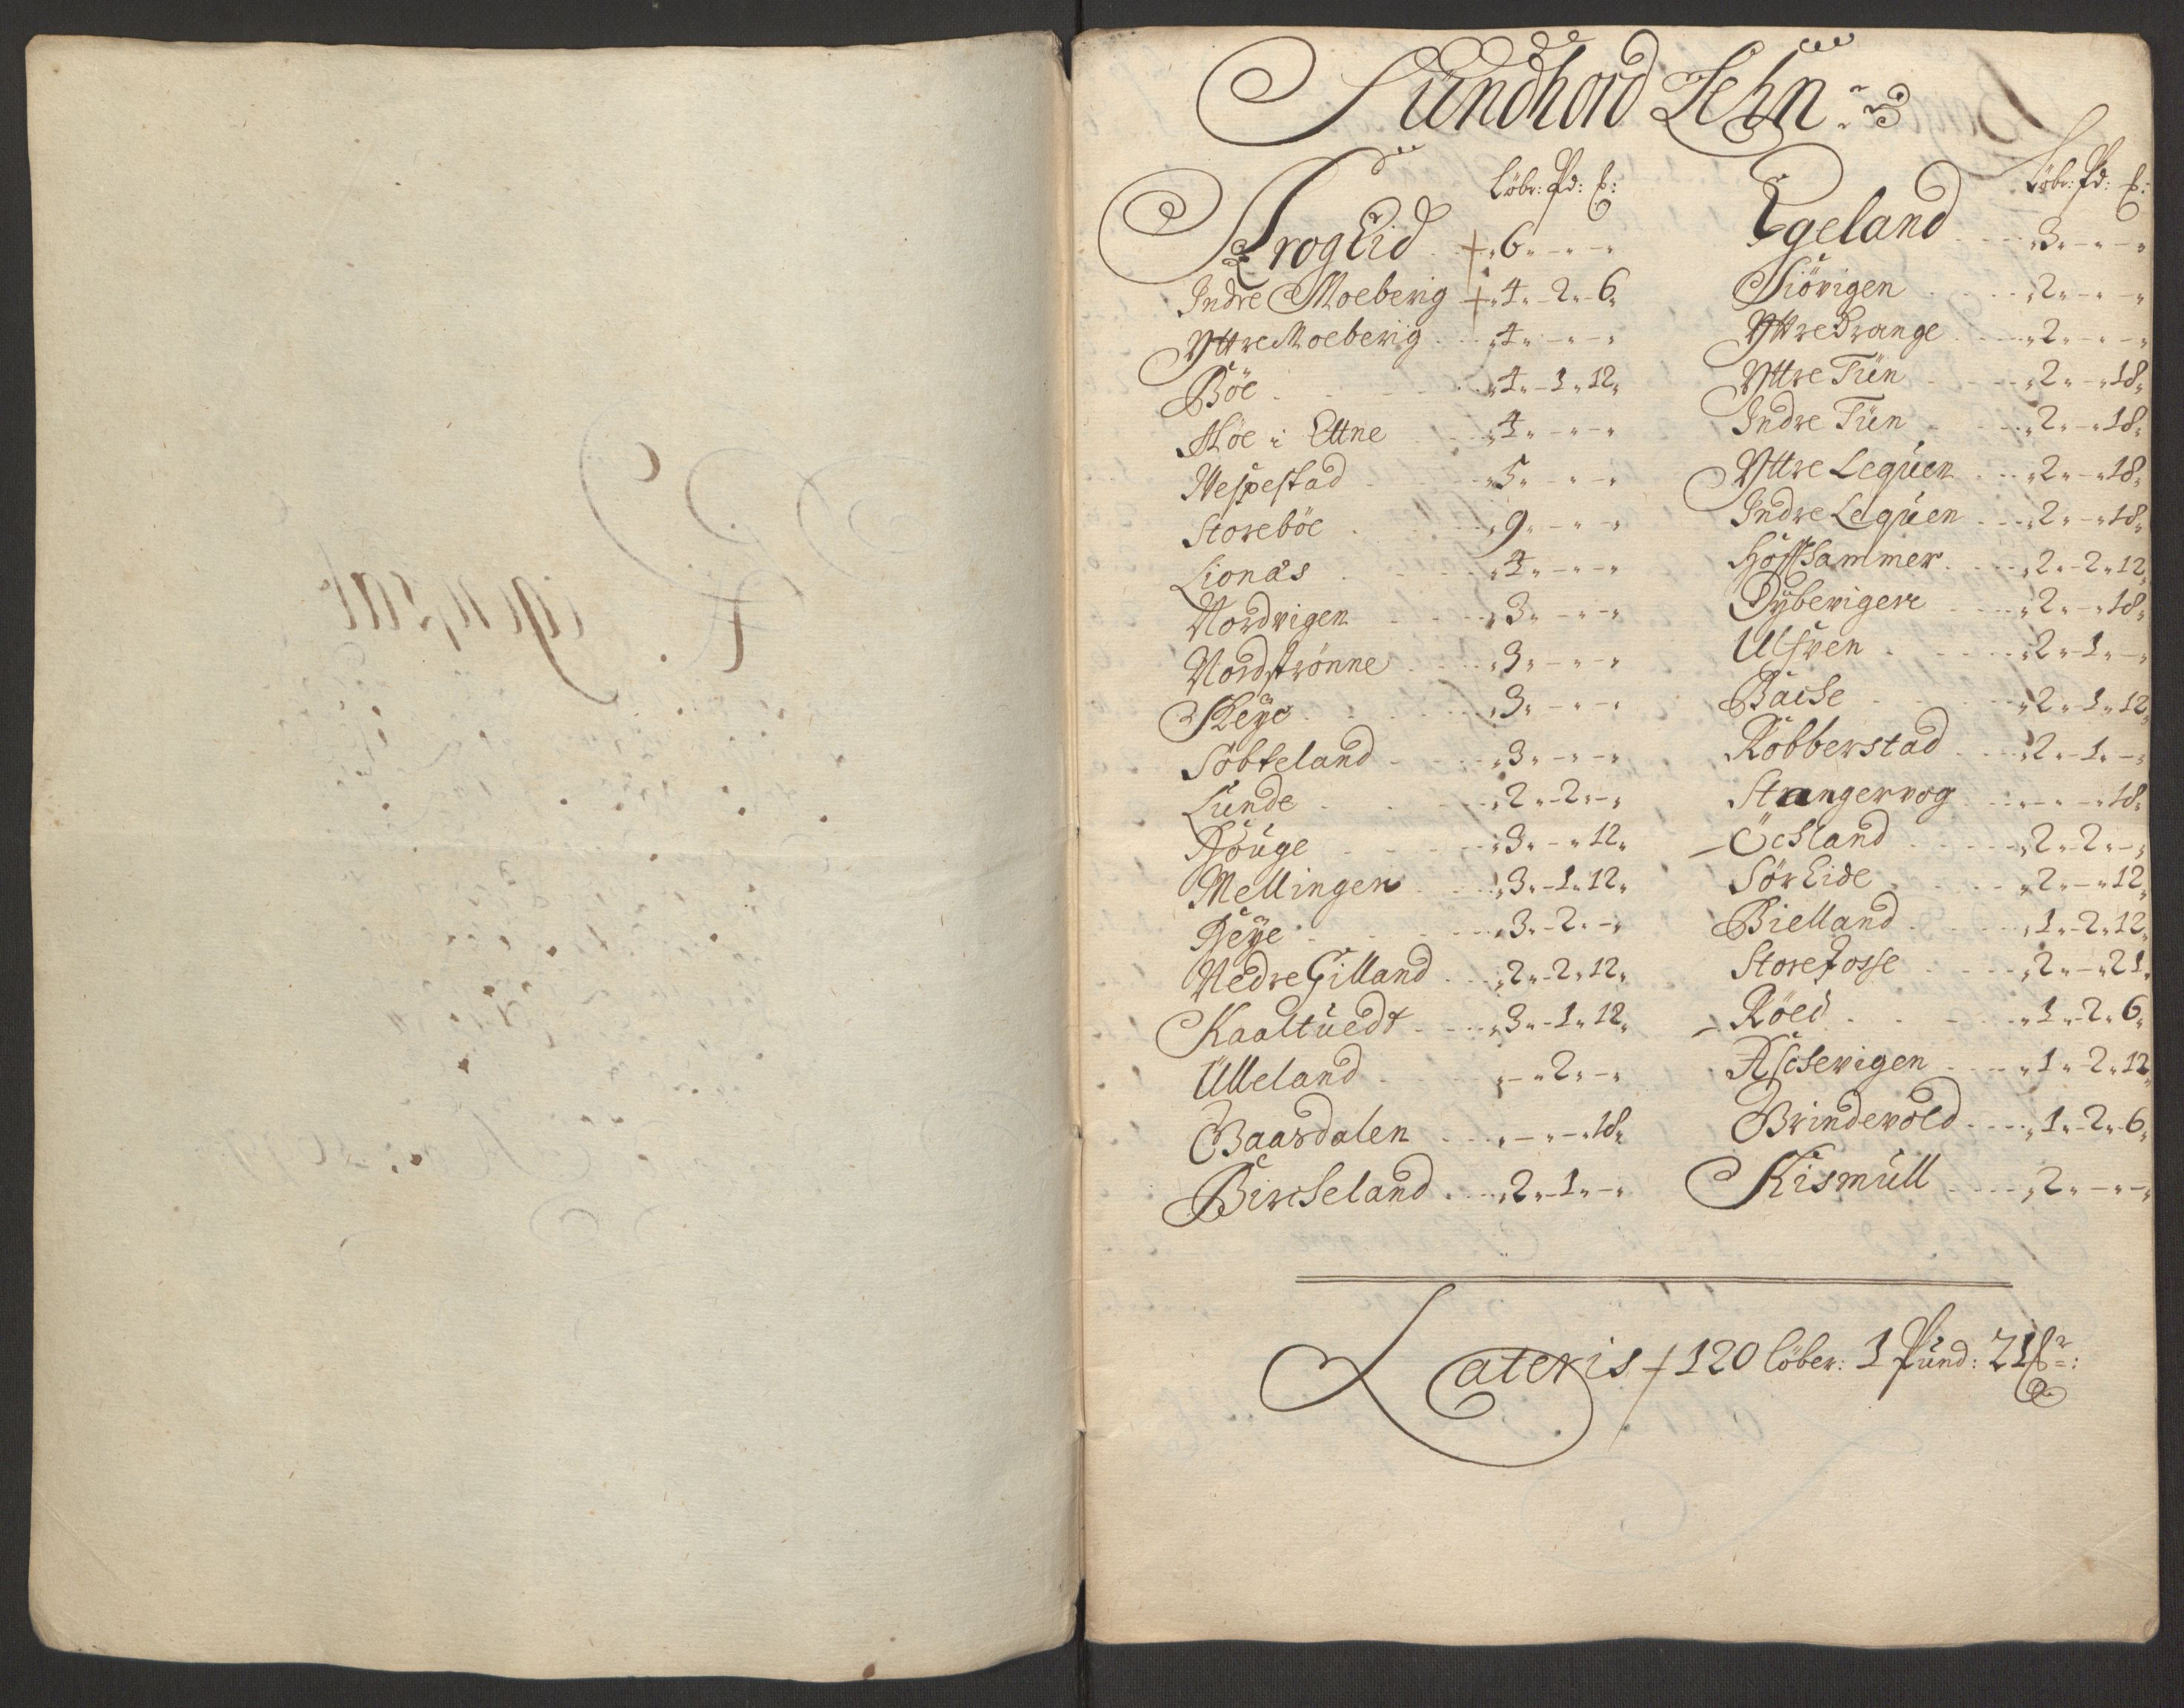 Sundhord Lehn
Löbr: Pd: ℔:
FrogEid 6 " - " - "
Indre Moeberig 4 " - 2 " - 6 "
Yttre Moeberig 4 " - " - "
Böe 4 " - 1 " 12 "
Höe i Ettne 4 " - " - "
Vespestad 5 " - " - "
Storeböe 9 " - " - "
Lionås 4 " - " - "
Nordvigen 3 " - " - "
Nordstrønne 3 " - " - "
Røye 3 " - " - "
Søbteland 3 " - " - "
Lunde 2 " - 2 " - "
Houge 3 " - " 12 "
Mellingen 3 " - 1 " 12 "
Høye 3 " - 2 " - "
Nedre Gilland 2 " - 2 " 12 "
Kaaltuedt 3 " - 1 " 12 "
Ulleland " - " 2 " - "
Baardalen " - " - " 18 "
Bircheland 2 " - 1 " - "
Löbr: Pd: ℔:
Egeland 3 " - " - "
Siövigen 2 " - " - "
Yttre Drange 2 " - " - "
Yttre Tün 2 " - " 18 "
Indre Tün 2 " - " 18 "
Yttre Leqüen 2 " - " 18 "
Indre Leqüen 2 " - " 18 "
Höffhammer 2 " - 2 " 12 "
Dybevigen 2 " - " 18 "
Ulfven 2 " - 1 " - "
Bache 2 " - 1 " 12 "
Robberstad 2 " - 1 " - "
Strangervog " - " - " 18 "
Öchland 2 " - 2 " - "
SörEide 2 " - " 12 "
Bielland 1 " - 2 " 12 "
Storefosse 2 " - " 21 "
Röed 1 " - 2 " 6 "
Aschevigen 1 " - 2 " 12 "
Brindevold 1 " - 2 " 6 "
Kismüll 2 " - " - "
Lateris 120 löber: 1 Pund: 21 ℔r: